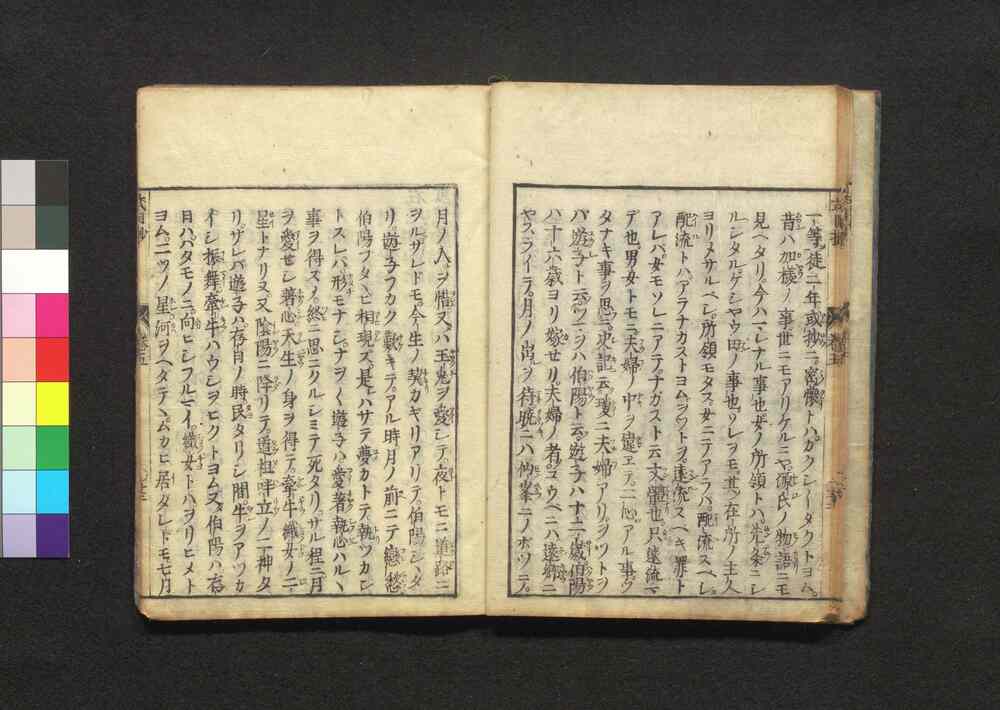 一等徒二年或抄ニ。密懐トハカクシイータクトヨム。
昔ハ加樣ノ事世ニモアリケルニヤ源氏ノ物語ニモ
見ヘタリ。今ハマレナル事也女ノ所領トハ。先条ニシ
ルシタルゲシヤウ田ノ事也。ソレヲモ。其ノ在所ノ主人
ヨリメサルベシ。所領モタヌ女ニテアラバ。配流スヘシ
配流トハ。アラナガストヨム。ヲツトヲ。遠流スヘキ罪ト
アレバ。女モソレニアテヽナガスト云文體也。只遠流マ
デ也男女トモニ。夫婦ノ中ヲ違ヱテ。二心アル事ウ
タテキ事ヲ思ニ。史記云爰ニ夫婦アリ。ヲツトヲ
バ遊子ト云ツマヲハ伯陽ト云遊子ハ十二歳伯陽
ハ十六歳ヨリ嫁セリ。夫婦ノ者。ユウベニハ遠郷ニ
ヤスライテ。月ノ出ヲ待晩ニハ向峯ニノボツテ。
月ノ入ヲ惜ム。又ハ玉兎ヲ愛シテ。夜トモニ道路ニ
ヲル。サレドモ。今生ノ契カギリアリテ。伯陽シヌタ
リ。遊子フカク歎キテ。アル時月ノ前ニテ戀愁
伯陽フタヽビ相現ズ。是ハサテ夢カトテ執ツカン
トスレバ形モナシ。ナヲ〱遊子ハ愛著執心ハルヽ
事ヲ得ズ。終ニ思ニクルシミテ死タリ。サル程ニ月
ヲ愛セシ著心天生ノ身ヲ得テ。牽牛織女ノ二
星トナリ又ハ陰陽ニ降リテ。道祖岐立ノ二神タ
リ。サレバ遊子ハ存日ノ時民タリシ間牛ヲアツカ
イシ振舞牽牛ハウシヲヒクトヨム。又伯陽ハ存
日ハバタモノニ向ヒシフルマイ。織女トハヲリヒメト
ヨム。二ツノ星河ヲヘタテヽムカヒ居タレドモ七月